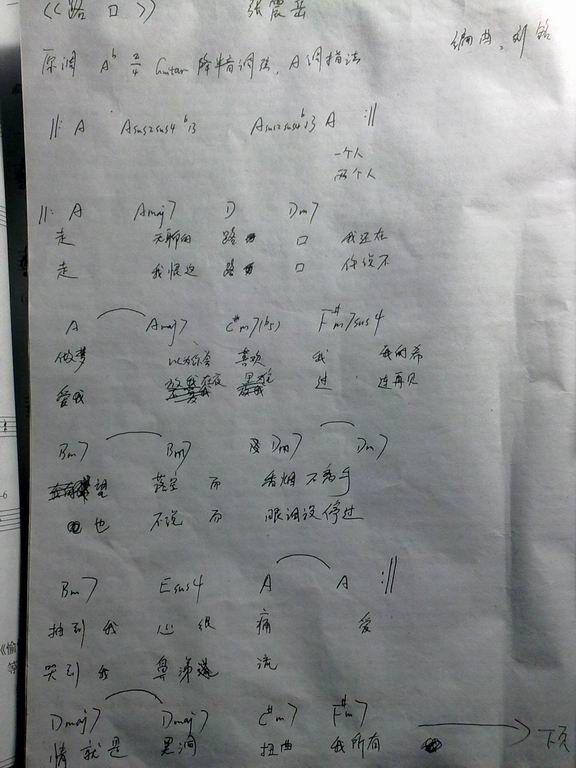 《路口》 张震岳
编曲:刘铭
原调 Ab 2/4 Guitar 降半音调弦, A调指法
||: A Asus2sus4 b13 Asus2sus4 b13 A :||
一个人
两个人
||: A Amaj7 D Dm7
走 无聊的 路 口 我还在
走 我恨这 路 口 你说不
A Amaj7 C#m7(b5) F#m7sus4
做梦 以为你会 喜欢 我 我的希
爱我 过 连再见
Bm7 Bm7 Dm7 Dm7
望 落空 而 香烟 不离手
也 不说 而 眼泪没停过
Bm7 Esus4 A A :||
抽到我 心 很 痛 爱
哭到我 鼻涕 流
Dmaj7 Dmaj7 C#m7 F#m7
情 就是 黑洞 扭曲 我所有 → 下页